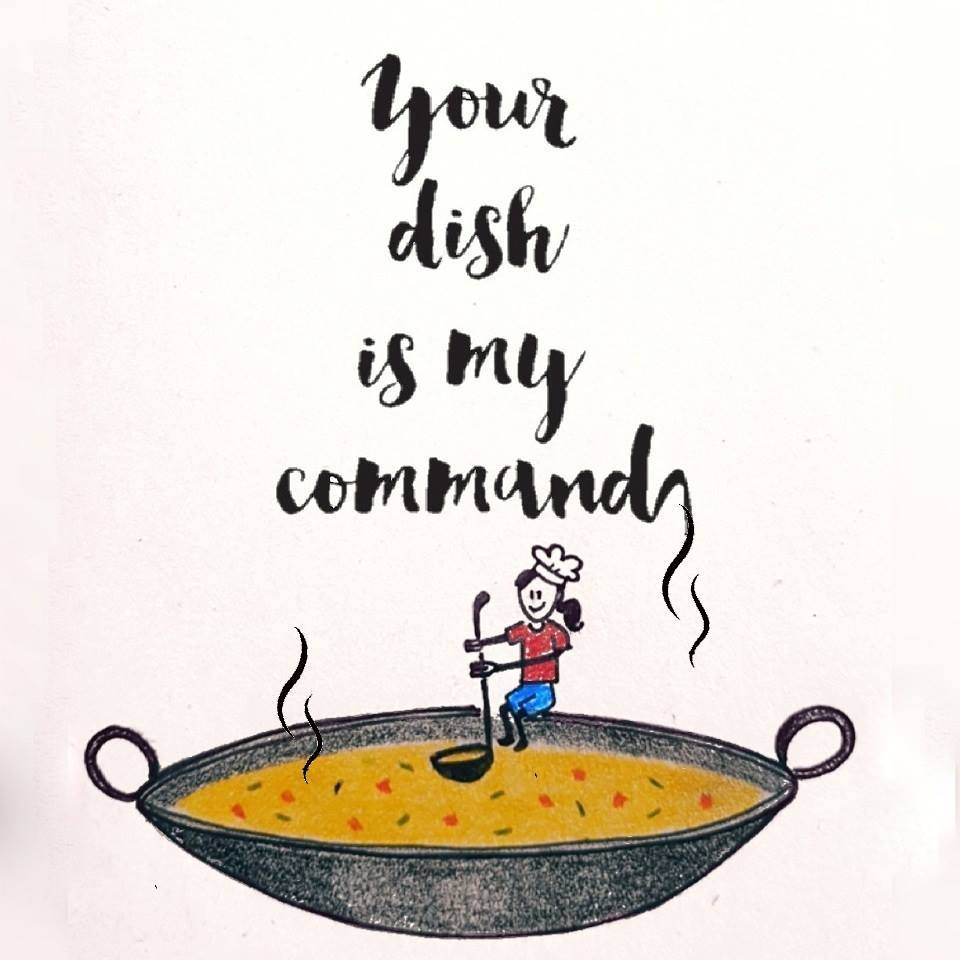 Your
dish
is my
command